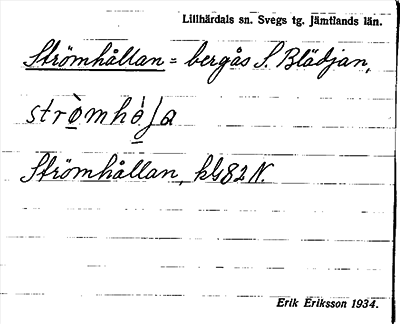 Lillhärdals sn. Svegs tg. Jämtlands län.
Strömhållan = bergås S. Blädjan,
Strömhållan, kbl 82 N.
Erik Eriksson 1934.